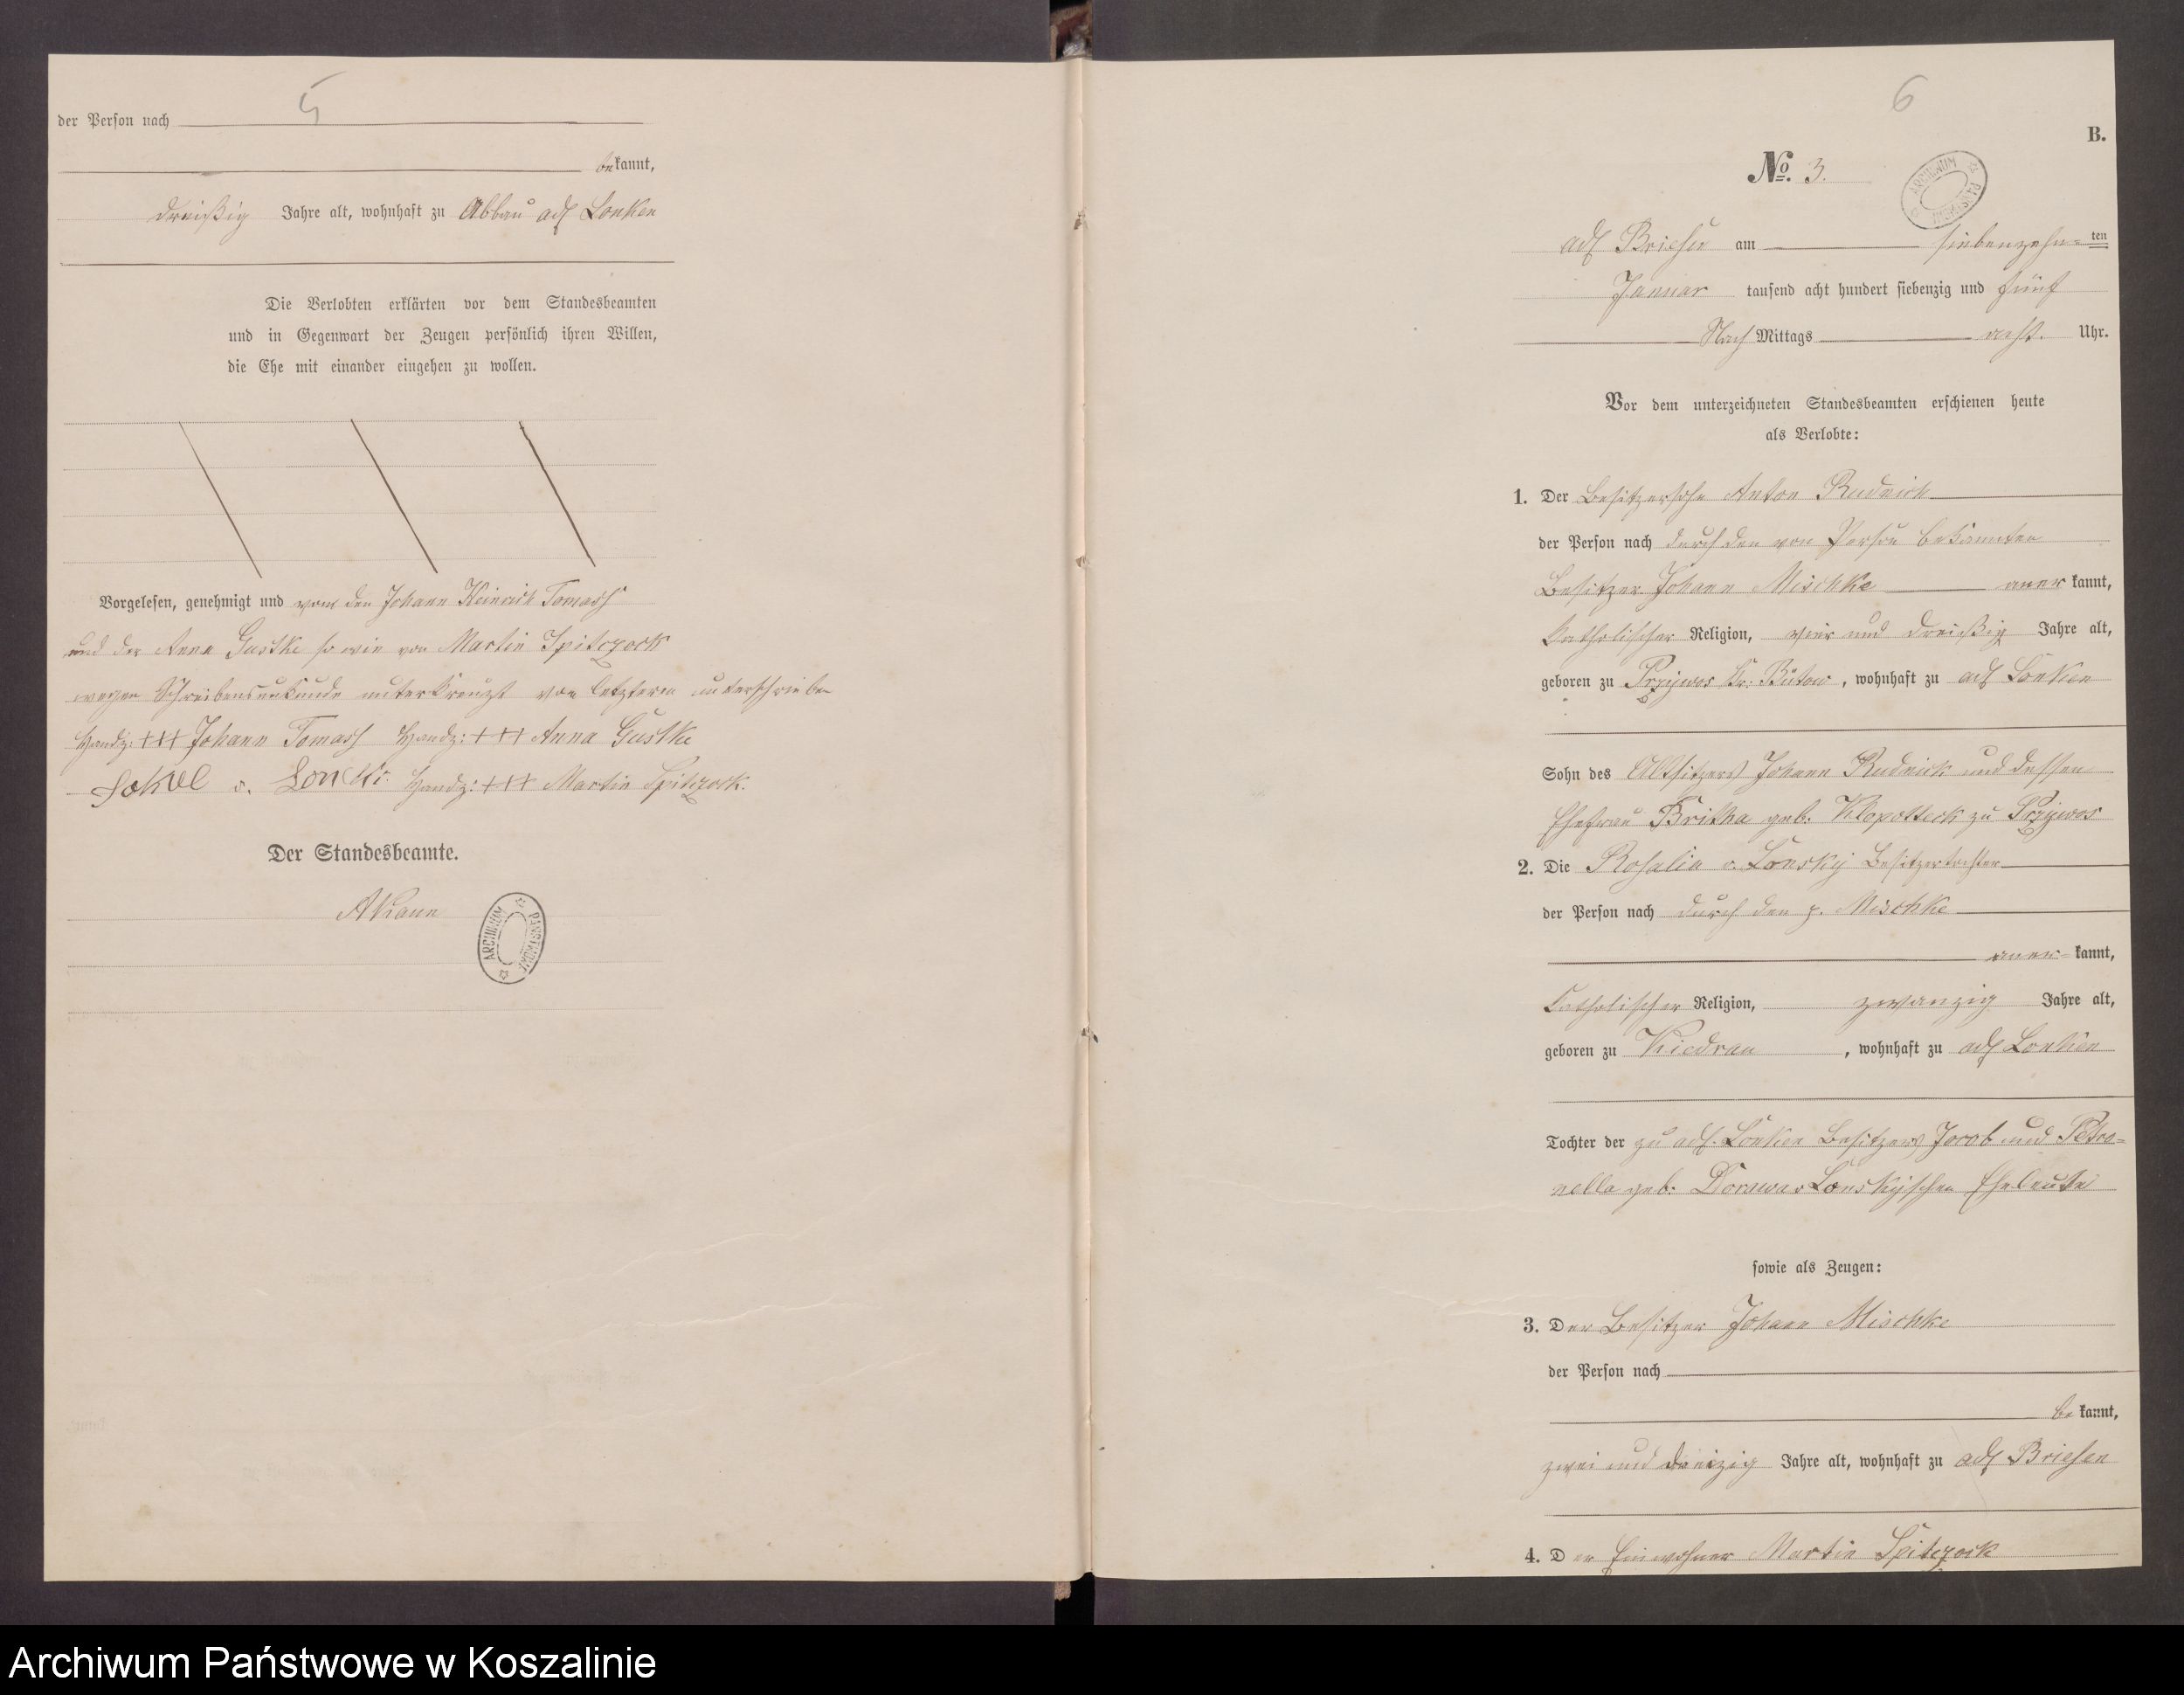 5
der Person nach
bekannt,
dreißig Jahre alt, wohnhaft zu Abbau adl Lonken
Die Verlobten erklärten vor dem Standesbeamten
und in Gegenwart der Zeugen persönlich ihren Willen,
die Ehe mit einander eingehen zu wollen.
Vorgelesen, genehmigt und von den Johann Heinrich Tomass
und der Anna Gustke so wie von Martin Spitczock
wegen Schreibensunkunde unterkreuzt von letzterem unterschrieben
Handz: +++ Johann Tomass Handz: +++ Anna Gustke
v. Handz: +++ Martin Spitczock.
Der Standesbeamte.
AKann
ARCHIWUM PAŃSTWOWE
6
B.
No. 3.
ARCHIWUM PAŃSTWOWE
adl Briesen am siebenzehn-ten
Januar tausend acht hundert siebenzig und fünf
Nach Mittags acht. Uhr.
Vor dem unterzeichneten Standesbeamten erschienen heute
als Verlobte:
1. Der Besitzersohn Anton Rudnick
der Person nach durch den von Person bekannten
Besitzer Johann Mischke aner kannt,
katholischer Religion, vier und dreißig Jahre alt,
geboren zu Przywos Kr: Bütow, wohnhaft zu adl Lonken
Sohn des Altsitzers Johann Rudnick und dessen
Ehefrau Britha geb. Klopotteck zu Przywos
2. Die Rosalia v. Lonsky Besitzertochter
der Person nach durch den p. Mischke
aner- kannt,
katholischer Religion, zwanzig Jahre alt,
geboren zu Kiedrau, wohnhaft zu adl Lonken
Tochter der zu adl. Lonken Besitzers Jacob und Petro-
nella geb. Lonskyschen Eheleute
sowie als Zeugen:
3. Der Besitzer Johann Mischke
der Person nach
be kannt,
zwei und dreizig Jahre alt, wohnhaft zu adl Briesen
4. Der Einwohner Martin Spitczock
Archiwum Państwowe w Koszalinie